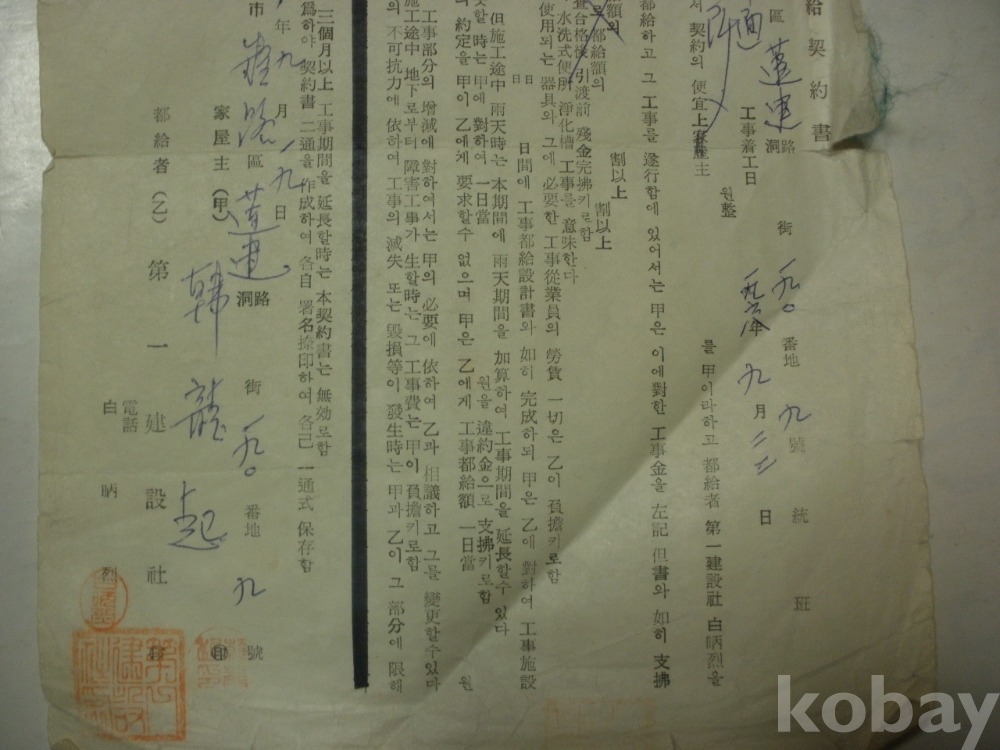 給契約書
區 蓮建 洞路 街 一九〇 番地 九 號 統 班
工事着工日 一九六八年 九 月 二二 日
서 契約의 便宜上 家屋主 를 甲이라하고 都給者 第一建設社 白昞烈을
원整
都給하고 그 工事를 遂行함에 있어서는 甲은 이에對한 工事金을 左記 但書와 如히 支拂
額의 割以上
都給額의 割以上
査合格後 引渡前 殘金完拂키로함
水洗式便所 淨化槽 工事를 意味한다
使用되는 器具와 그에 必要한 工事從業員의 勞賃 一切은 乙이 負擔키로함
日 日間에 工事都給設計書와 如히 完成하되 甲은 乙에 對하여 工事施設
但施工途中 雨天時는 本期間에 雨天期間을 加算하여 工事期間을 延長할수 있다
못할 時는 甲에 對하여 一日當 원을 違約金으로 支拂키로함
의 約定을 甲이 乙에게 要求할수 없으며 甲은 乙에게 工事都給額 一日當 원
工事部分의 增減에 對하여서는 甲의 必要에 依하여 乙과 相議하고 그를 變更할수있다
施工途中 地下로부터 障害工事가 生할時는 그 工事費는 甲이 負擔키로함
의 不可抗力에 依하여 工事의 滅失 또는 毀損等이 發生時는 甲과 乙이 그 部分에 限해
三個月以上 工事期間을 延長할時는 本契約書는 無効로함
爲하야 契約書 二通을 作成하여 各自 署名捺印하여 各己 一通式 保存함
年 九 月 一九 日
市 鍾路 區 蓮建 洞路 街 一九〇 番地 九 號
家屋主 (甲) 韓龍起 ㊞
都給者 (乙) 第一建設社
電話
白昞烈
kobay